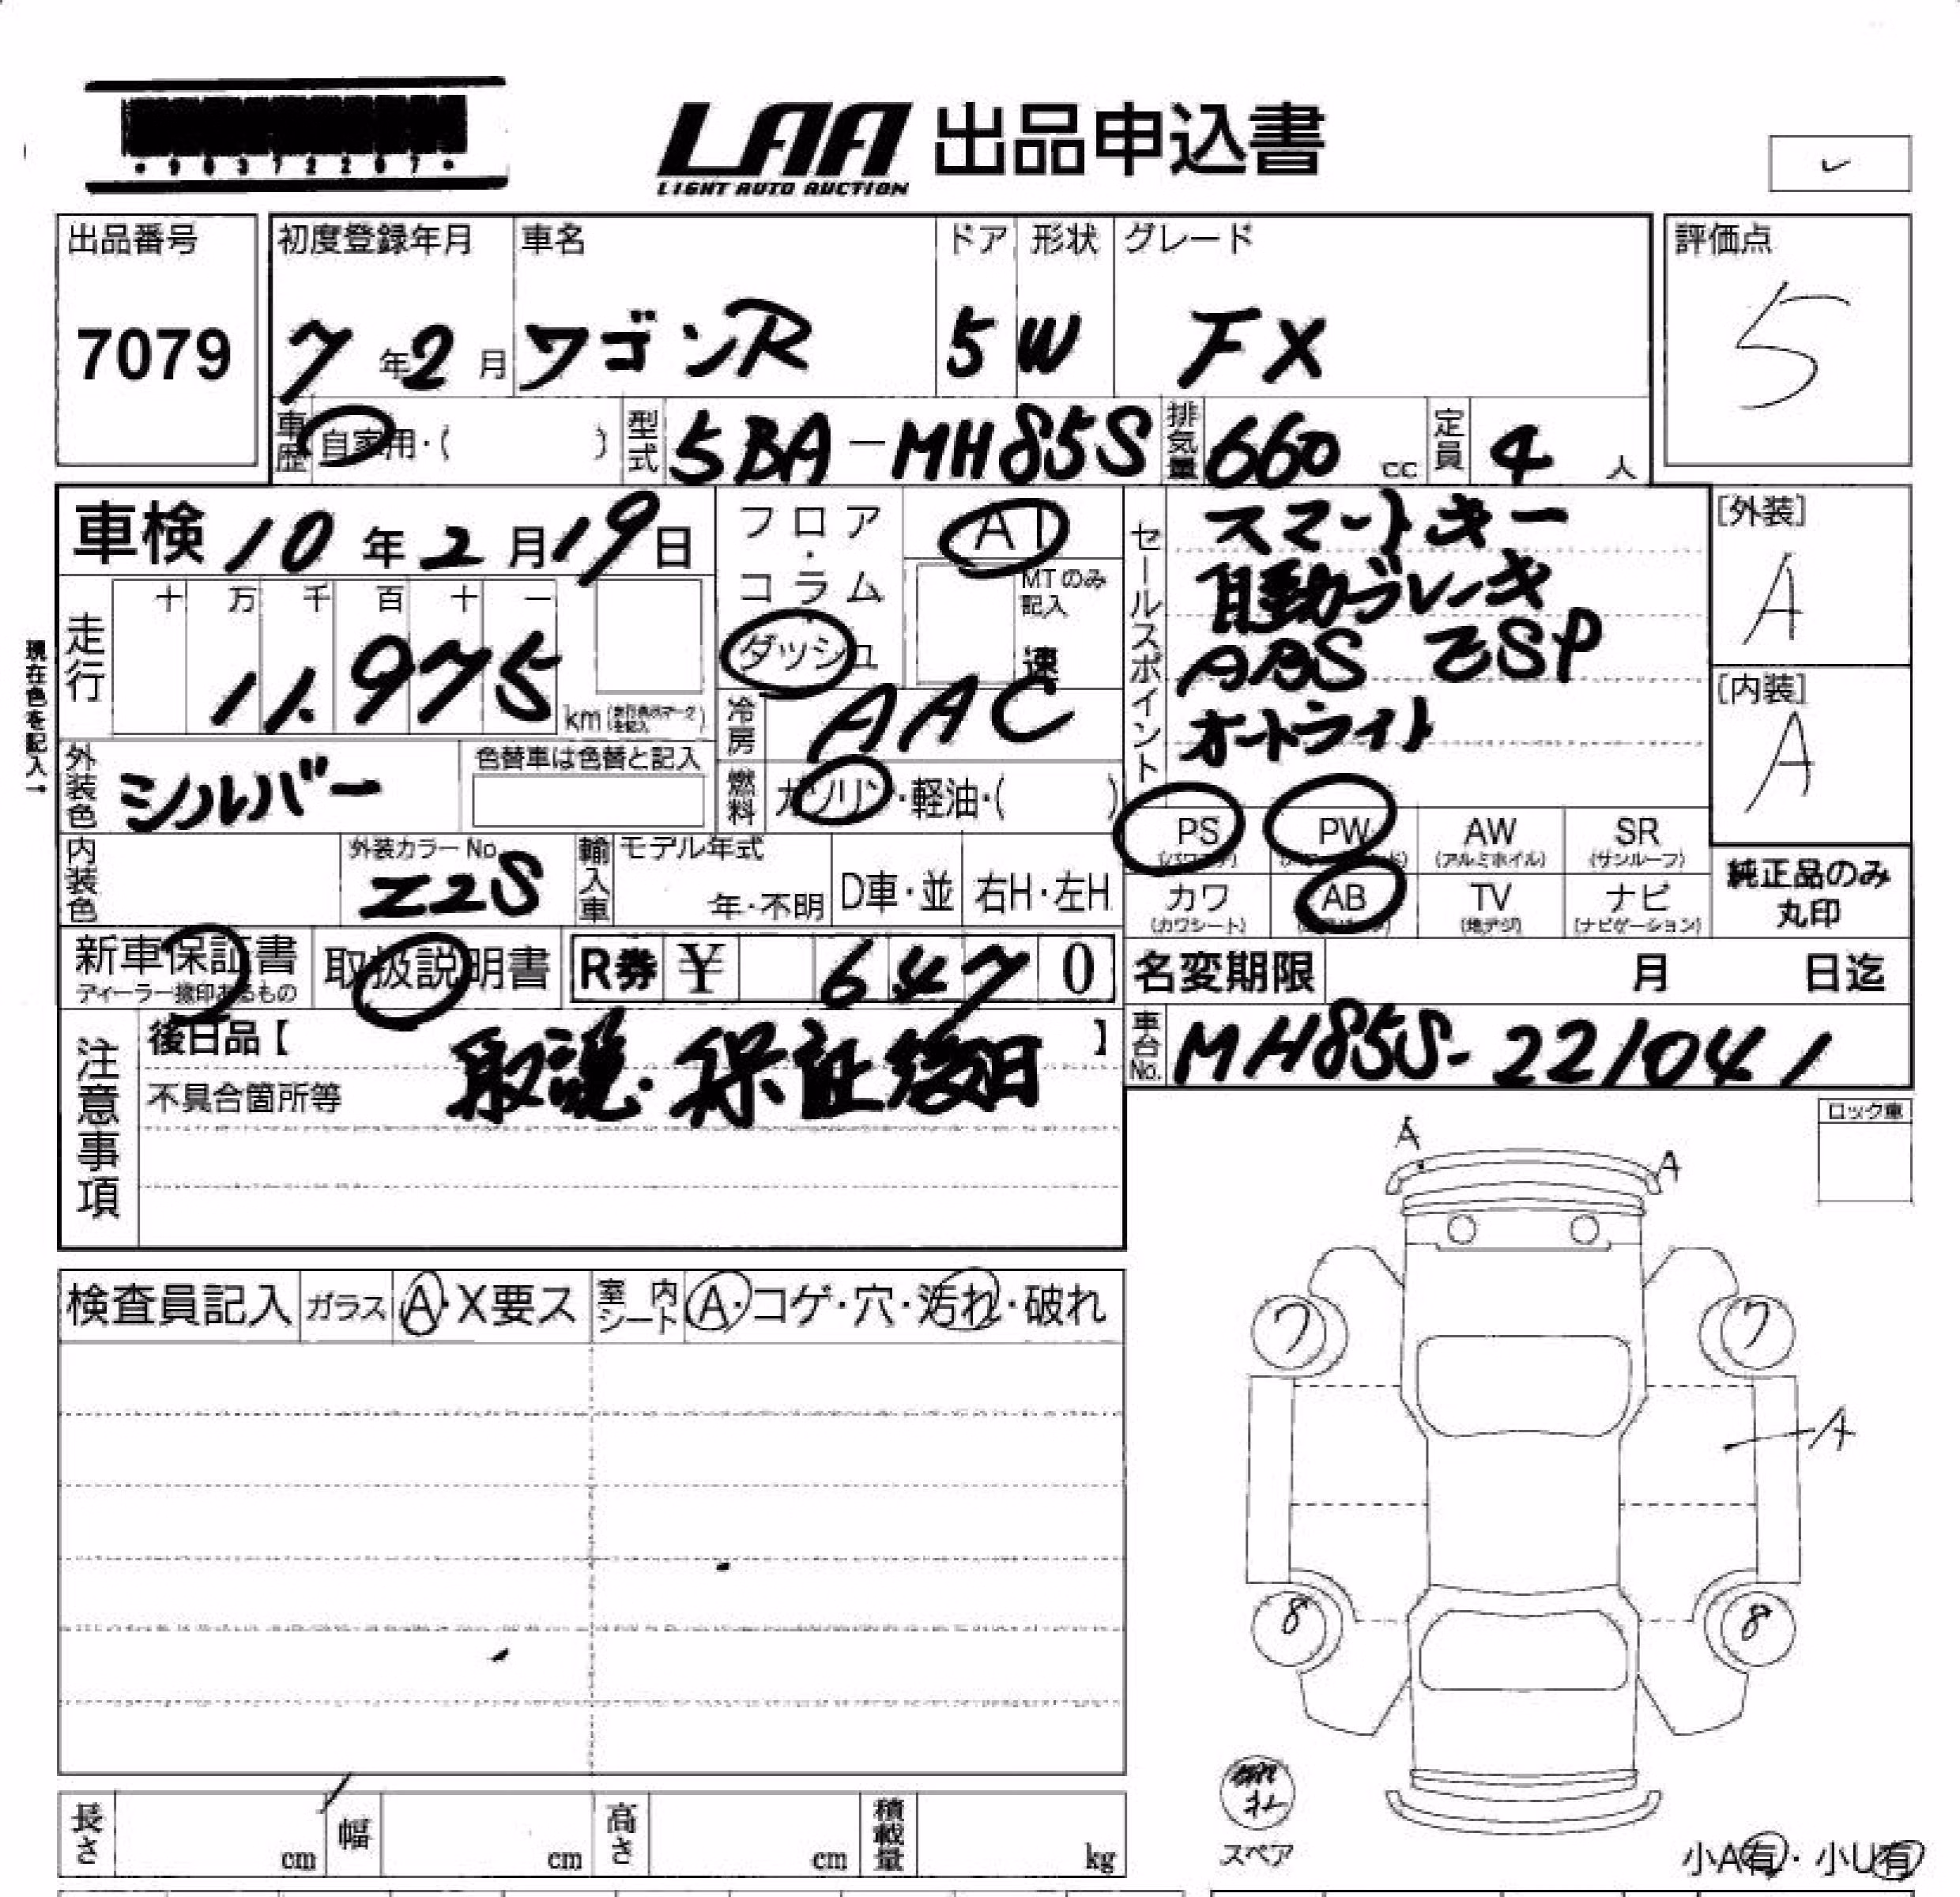 ・90372207・
LAA 出品申込書
LIGHT AUTO AUCTION
出品番号 初度登録年月 車名 ドア 形状 グレード 評価点
7079 7年2月 ワゴンR 5 W FX 5
車歴 自家用・( ) 型式 5BA-MH85S 排気量 660 cc 定員 4 人
車検 10年2月19日 フロア・コラム ダッシュ AT
MTのみ記入 速
セールスポイント
スマートキー
自動ブレーキ
ABS ESP
オートライト
[外装]
A
[内装]
A
現在色を記入→
走行 十 万 千 百 十 一
11.975 km
冷房 AAC
外装色 シルバー 色替車は色替と記入
燃料 ガソリン・軽油・( )
PS PW AW SR
(パワステ) (アルミホイル) (サンルーフ)
カワ AB TV ナビ
(カワシート) (地デジ) (ナビゲーション)
純正品のみ
丸印
内装色 外装カラーNo. Z2S 輸入車 モデル年式 年・不明 D車・並 右H・左H
新車保証書 取扱説明書 R券 ¥ 6470
ディーラー捺印あるもの
名変期限 月 日迄
車台No. MH85S-221041
注意事項
後日品【 】
取説・保証後日
不具合箇所等
ロック車
A
A
検査員記入 ガラス A・X要ス 室内シート A・コゲ・穴・汚れ・破れ
7 7
A
8 8
スペア
長さ cm 幅 cm 高さ cm 積載量 kg
小A有・小U有